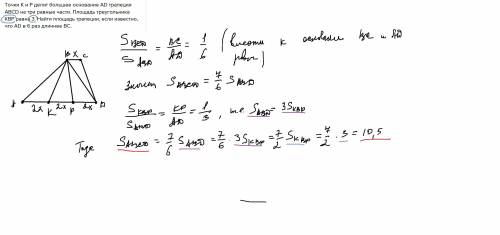 Точки K и P делят большее основание AD трапеции
ABCD не три равные части. Площадь треугольника
KBP равна 3. Найти площадь трапеции, если известно,
что AD в 6 раз длиннее BC.
B x C
A 2x K 2x P 2x D
S_BCD / S_ABD = BC / AD = 1 / 6 (высоты к основаниям BC и AD равны)
Значит S_ABCD = 7/6 S_ABD
S_KBP / S_ABD = KP / AD = 1 / 3, т.е S_ABD = 3S_KBP
Тогда S_ABCD = 7/6 S_ABD = 7/6 · 3S_KBP = 7/2 S_KBP = 7/2 · 3 = 10,5